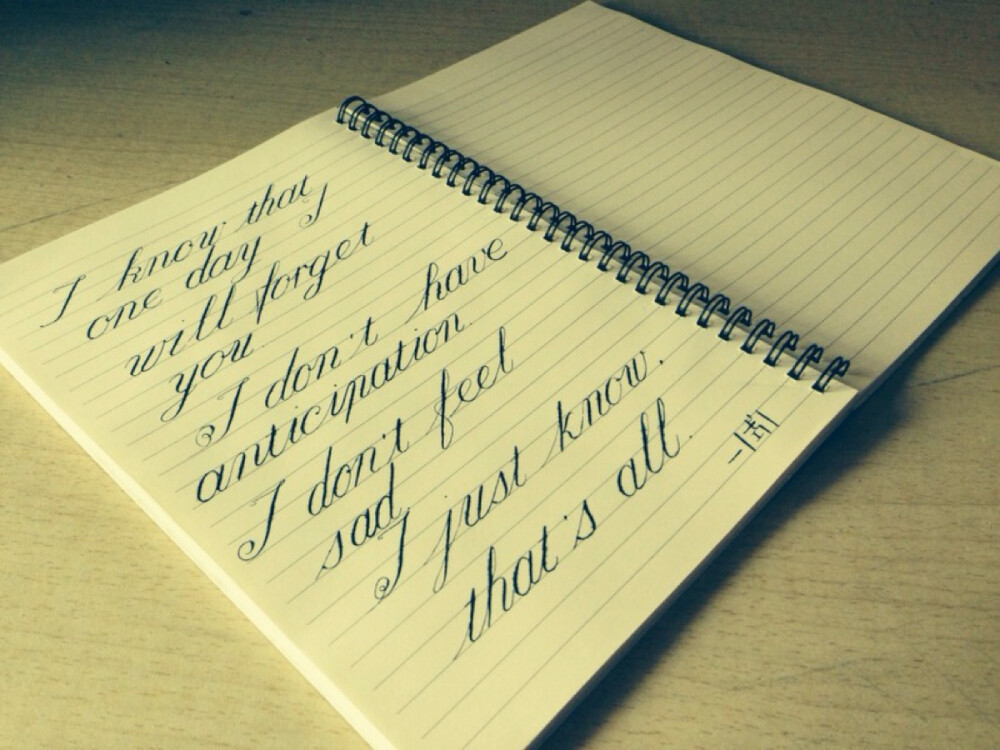 I know that
one day I
will forget
you
I don't have
anticipation.
I don't feel
sad
I just know.
that's all.